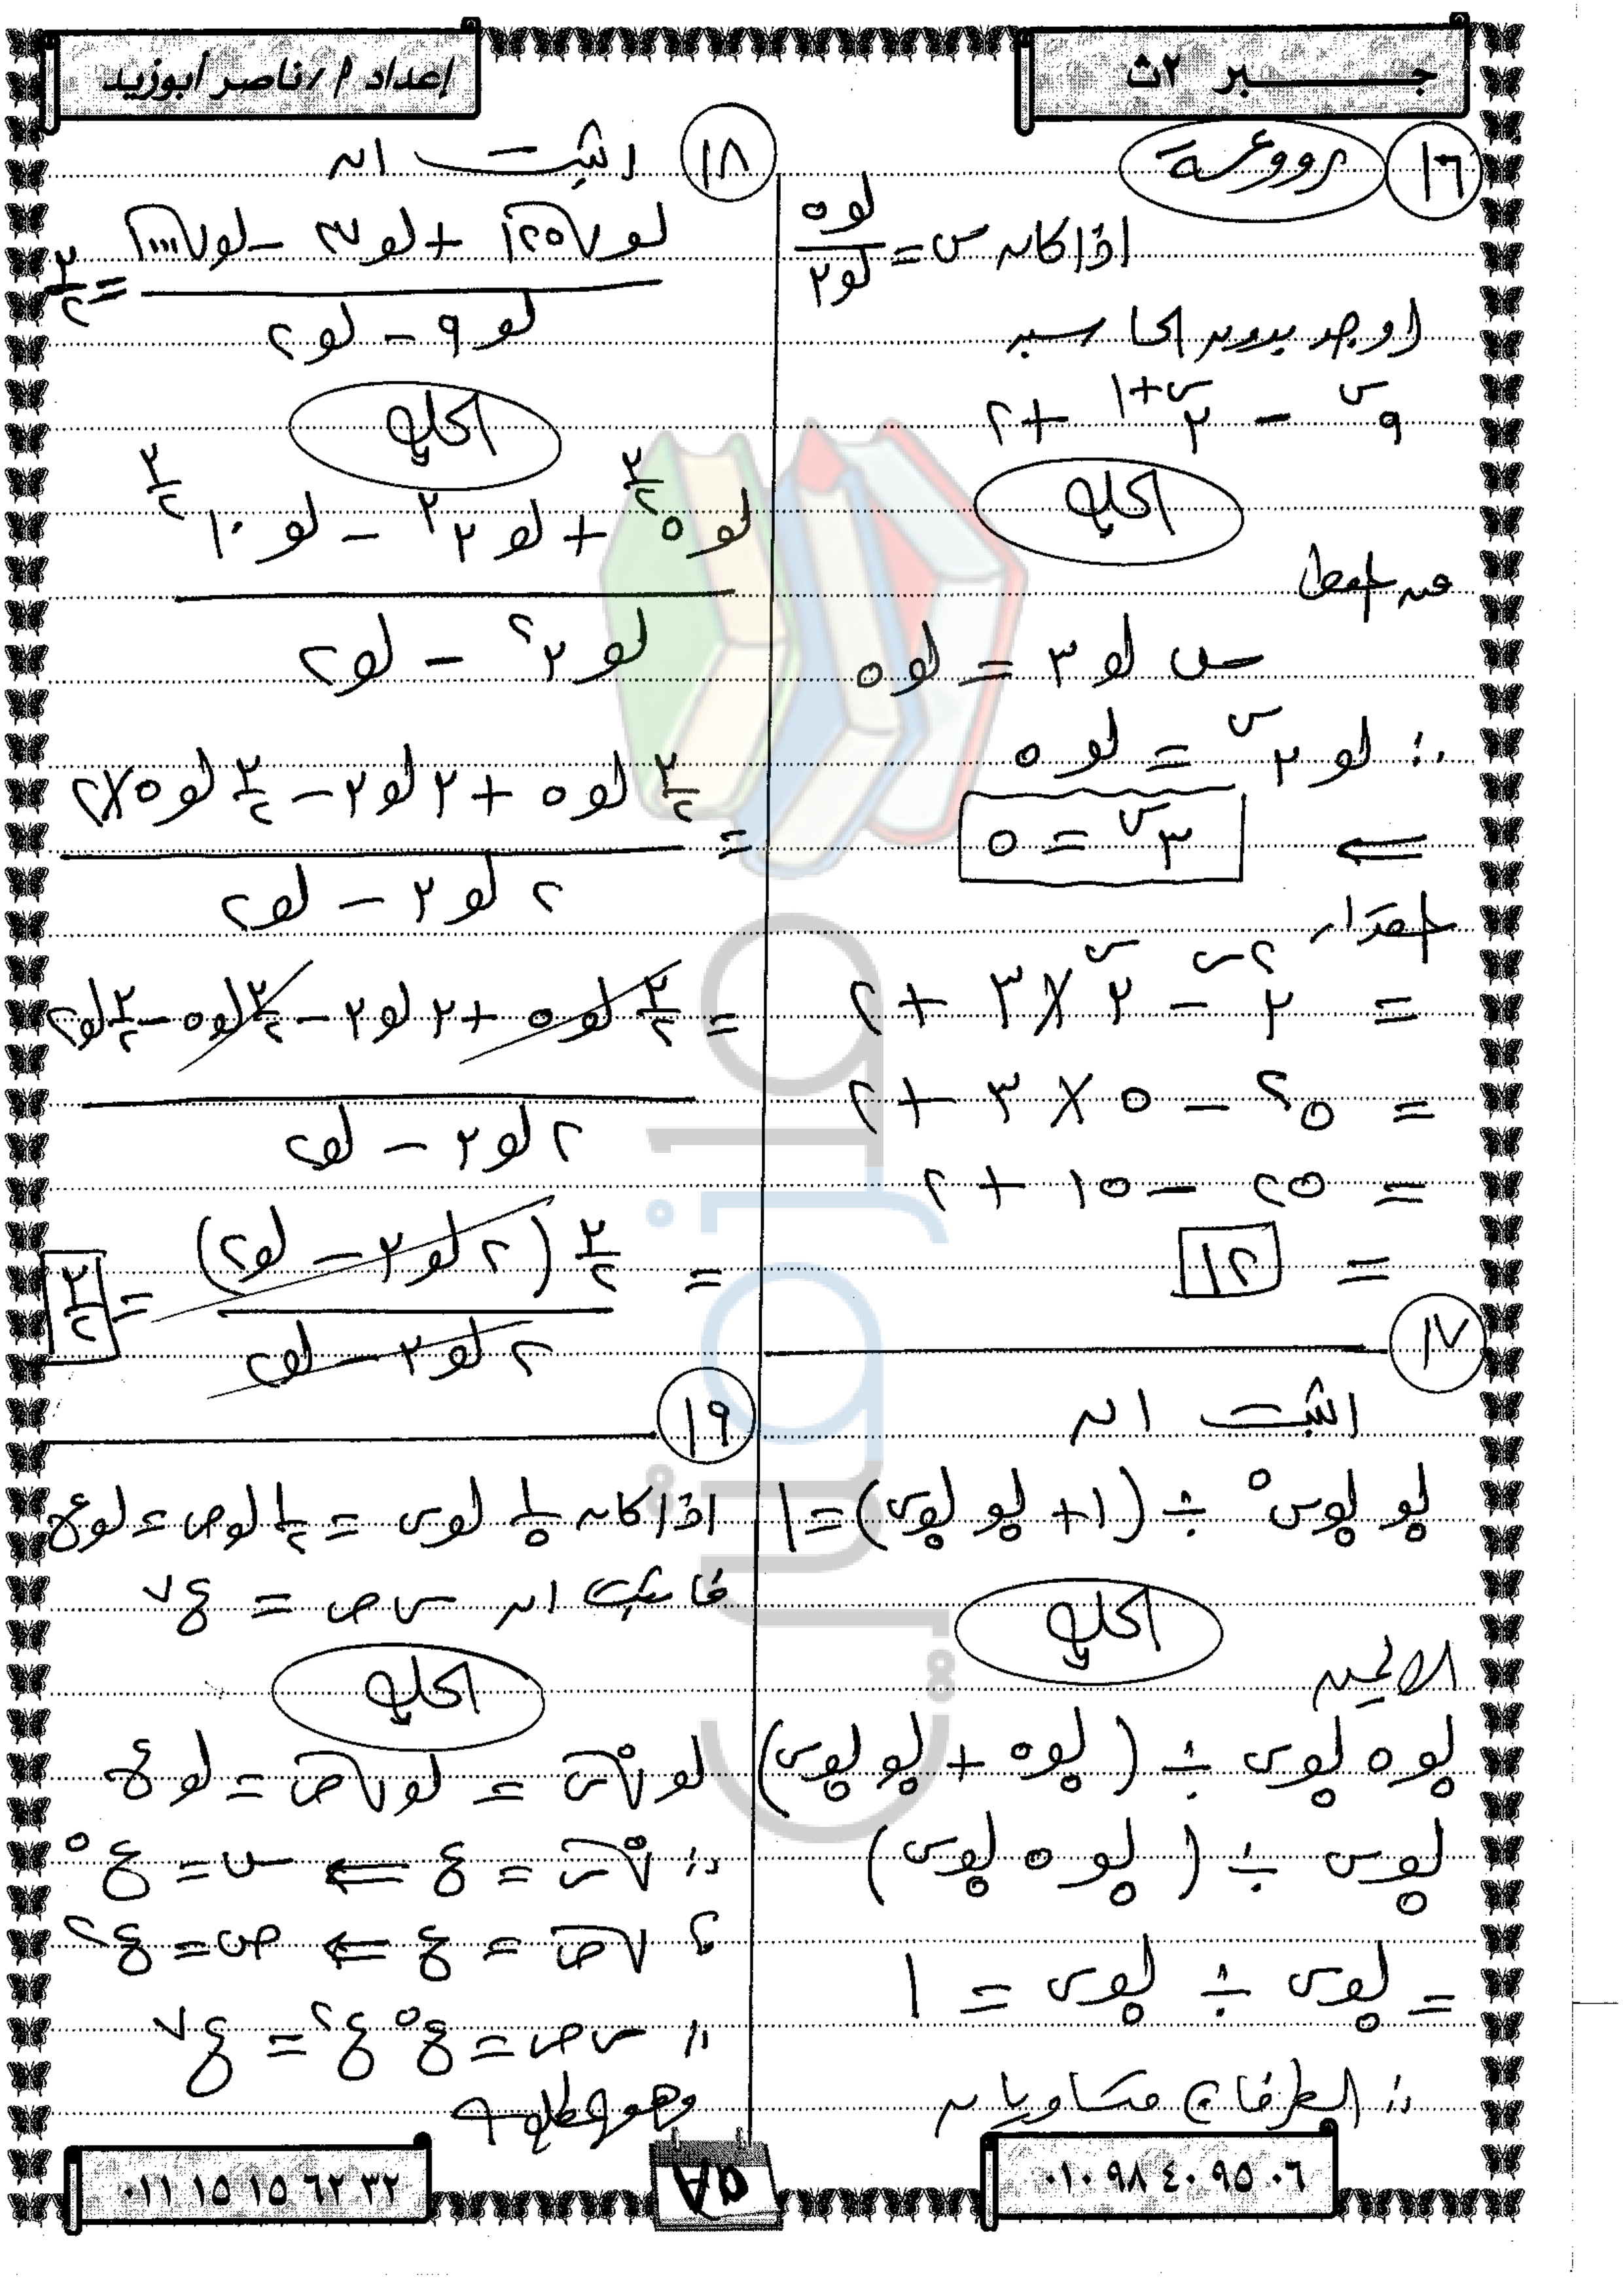 جبر ٢ث
إعداد أ/ ناصر أبوزيد
١٦ رووعة
اذا كان س = لو٥ / لو٣
اوجد بدون الحاسبه
٩^س - ٣^(س+١) + ٢
الحل
من المعطى
س لو ٣ = لو ٥
∴ لو ٣^س = لو ٥
⇐ ٣^س = ٥
المقدار
= ٣^(٢س) - ٣^س × ٣ + ٢
= ٥^٢ - ٥ × ٣ + ٢
= ٢٥ - ١٥ + ٢
= ١٢
١٧
اثبت ان
لو_٥ لو_٥ س^٥ ÷ (١ + لو_٥ لو_٥ س) = ١
الحل
الايمن
لو_٥ ٥ لو_٥ س ÷ (لو_٥ ٥ + لو_٥ لو_٥ س)
لو_٥ س ÷ (لو_٥ ٥ لو_٥ س)
= لو_٥ س ÷ لو_٥ س = ١
∴ الطرفان متساويان
١٨ اثبت ان
(لو√١٢٥ + لو٢٧ - لو√١٠٠٠) / (لو ٩ - لو ٢) = ٣/٢
الحل
(لو ٥^(٣/٢) + لو ٣^٣ - لو ١٠^(٣/٢)) / (لو ٣^٢ - لو ٢)
= (٣/٢ لو ٥ + ٣ لو ٣ - ٣/٢ لو ٥×٢) / (٢ لو ٣ - لو ٢)
= (٣/٢ لو ٥ + ٣ لو ٣ - ٣/٢ لو ٥ - ٣/٢ لو ٢) / (٢ لو ٣ - لو ٢)
= ٣/٢ (٢ لو ٣ - لو ٢) / (٢ لو ٣ - لو ٢) = ٣/٢
١٩
اذا كان ١/٥ لو س = ١/٢ لو ص = لو ع
فاثبت ان س ص = ع^٧
الحل
لو ⁵√س = لو √ص = لو ع
∴ ⁵√س = ع ⇐ س = ع^٥
، √ص = ع ⇐ ص = ع^٢
∴ س ص = ع^٥ ع^٢ = ع^٧
وهو المطلوب
٠١٠ ٩٨ ٤٠ ٩٥ ٠٦
٥٨
٠١١ ١٥ ١٥ ٦٢ ٣٢